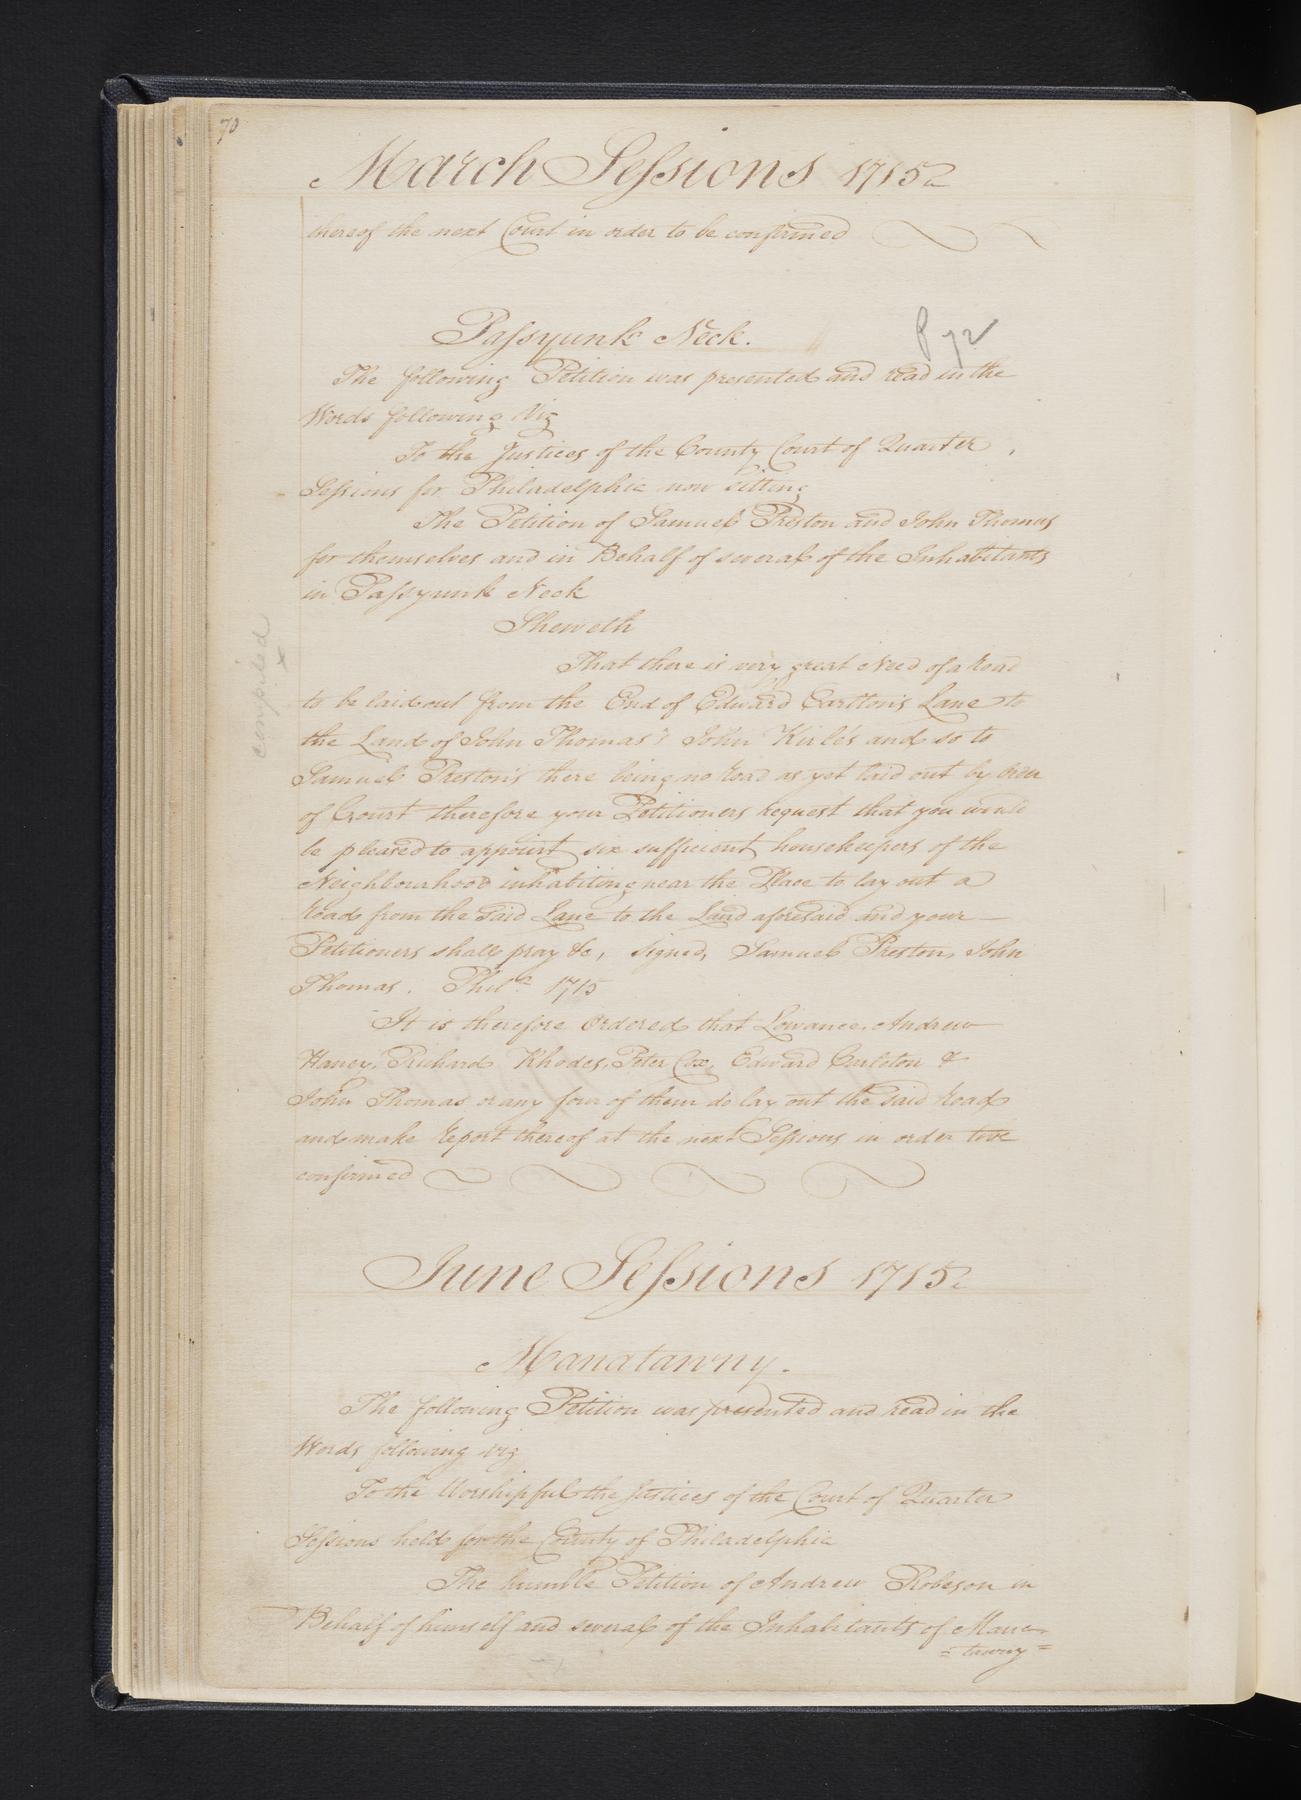 70
March Sessions 1715
thereof the next Court in order to be confirmed
Passyunk Neck.
P 72
The following Petition was presented and read in the
Words following Viz
To the Justices of the County Court of Quarter
Sessions for Philadelphia now sitting
The Petition of Samuel Preston and John Thomas
for themselves and in Behalf of several of the Inhabitants
in Passyunk Neck
Sheweth
That there is very great Need of a Road
to be laid out from the End of Edward Carlton's Lane to
the Land of John Thomas's John Kirle's and so to
Samuel Preston's there being no Road as yet laid out by Order
of Court therefore your Petitioners request that you would
be pleased to appoint six sufficient housekeepers of the
Neighbourhood inhabiting near the Place to lay out a
Road from the said Lane to the Land aforesaid and your
Petitioners shall pray &c, signed, Samuel Preston, John
Thomas. Phila 1715
It is therefore Ordered that Lowance, Andrew
Haney, Richard Rhodes, Peter Cox, Edward Carleton &
John Thomas or any four of them do lay out the said Road
and make Report thereof at the next Sessions in order to be
confirmed
compiled
x
June Sessions 1715
Manatawny.
The following Petition was presented and read in the
Words following viz
To the Worshipful the Justices of the Court of Quarter
Sessions held for the County of Philadelphia
The humble Petition of Andrew Robeson in
Behalf of himself and several of the Inhabitants of Mana-
= tawny =